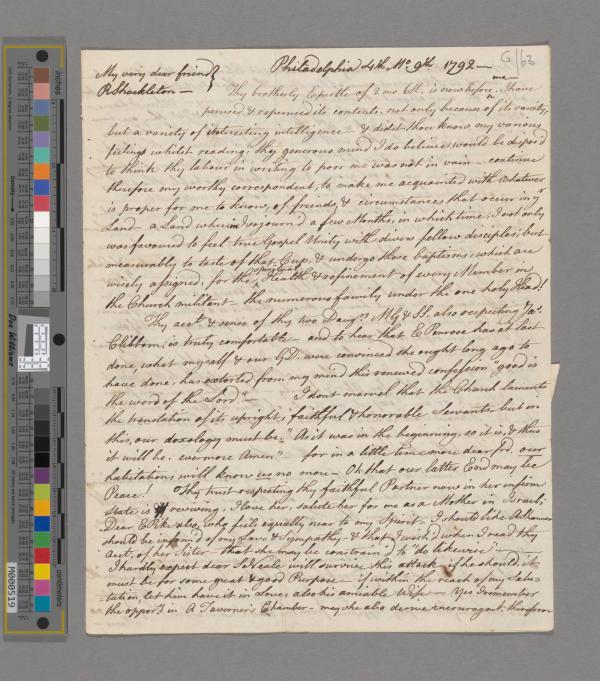 G/63
My very dear friend
Philadelphia 4th Mo. 9th 1792 —
R Shackleton —
Thy brotherly Epistle of 2 mo Ult. is now before me I have
perused & reperused its contents, not only because of its variety,
but a variety of interesting intelligence & didst thou know my various
feelings whilst reading, thy generous mind I do believe would be dispos'd
to think thy labour in writing to poor me was not in vain — continue
therefore my worthy correspondent, to make me acquainted with whatever
is proper for me to know, of friends, & circumstances that occur in yr
Land — a Land wherein I sojourn'd a few Months, in which time, I not only
was favoured to feel true Gospel Unity with divers fellow disciples; but
measurably to taste of that Cup, & undergo those baptisms, which are
wisely assigned, for the spiritual Health & refinement of every Member in
the Church militant — the numerous family under the one holy Head!
Thy acct. & sense of thy two Daugrs. MG & SS. also respecting
Clibborn, is truly comfortable — and to hear that E Penrose has at last
done, what myself & our were convinced she ought long ago to
have done, has extorted from my mind this renewed confession "good is
the word of the Lord" — I dont marvel that the Church laments
the translation of its upright, faithful & honorable Servants, but in
this, our doxology must be, "As it was in the beginning, so it is, & thus
it will be. evermore Amen" — for in a little time more dear frd. our
habitations, will know us no more — Oh that our latter End may be
Peace! Thy trust respecting thy faithful Partner now in her infirm
state is reviving, I love her, salute her for me as a Mother in Israel;
Dear E Pike also, who feels equally near to my Spirit — I should like
should be inform'd of my Love & Sympathy — & that I wish'd when I read thy
Acct. of her Sister — that she may be constrain'd to "do likewise" —
I hardly expect dear J Beale will survive this attack — if he should, it
must be for some great & good Purpose — if within the reach of my Salu-
-tation, let him have it in Love, also his amiable Wife — Yes I remember
the opporty. in A Taverner's Chamber — may she also derive encouragemt. therefrom
inches
centimeters
Density
Don Williams
M000519